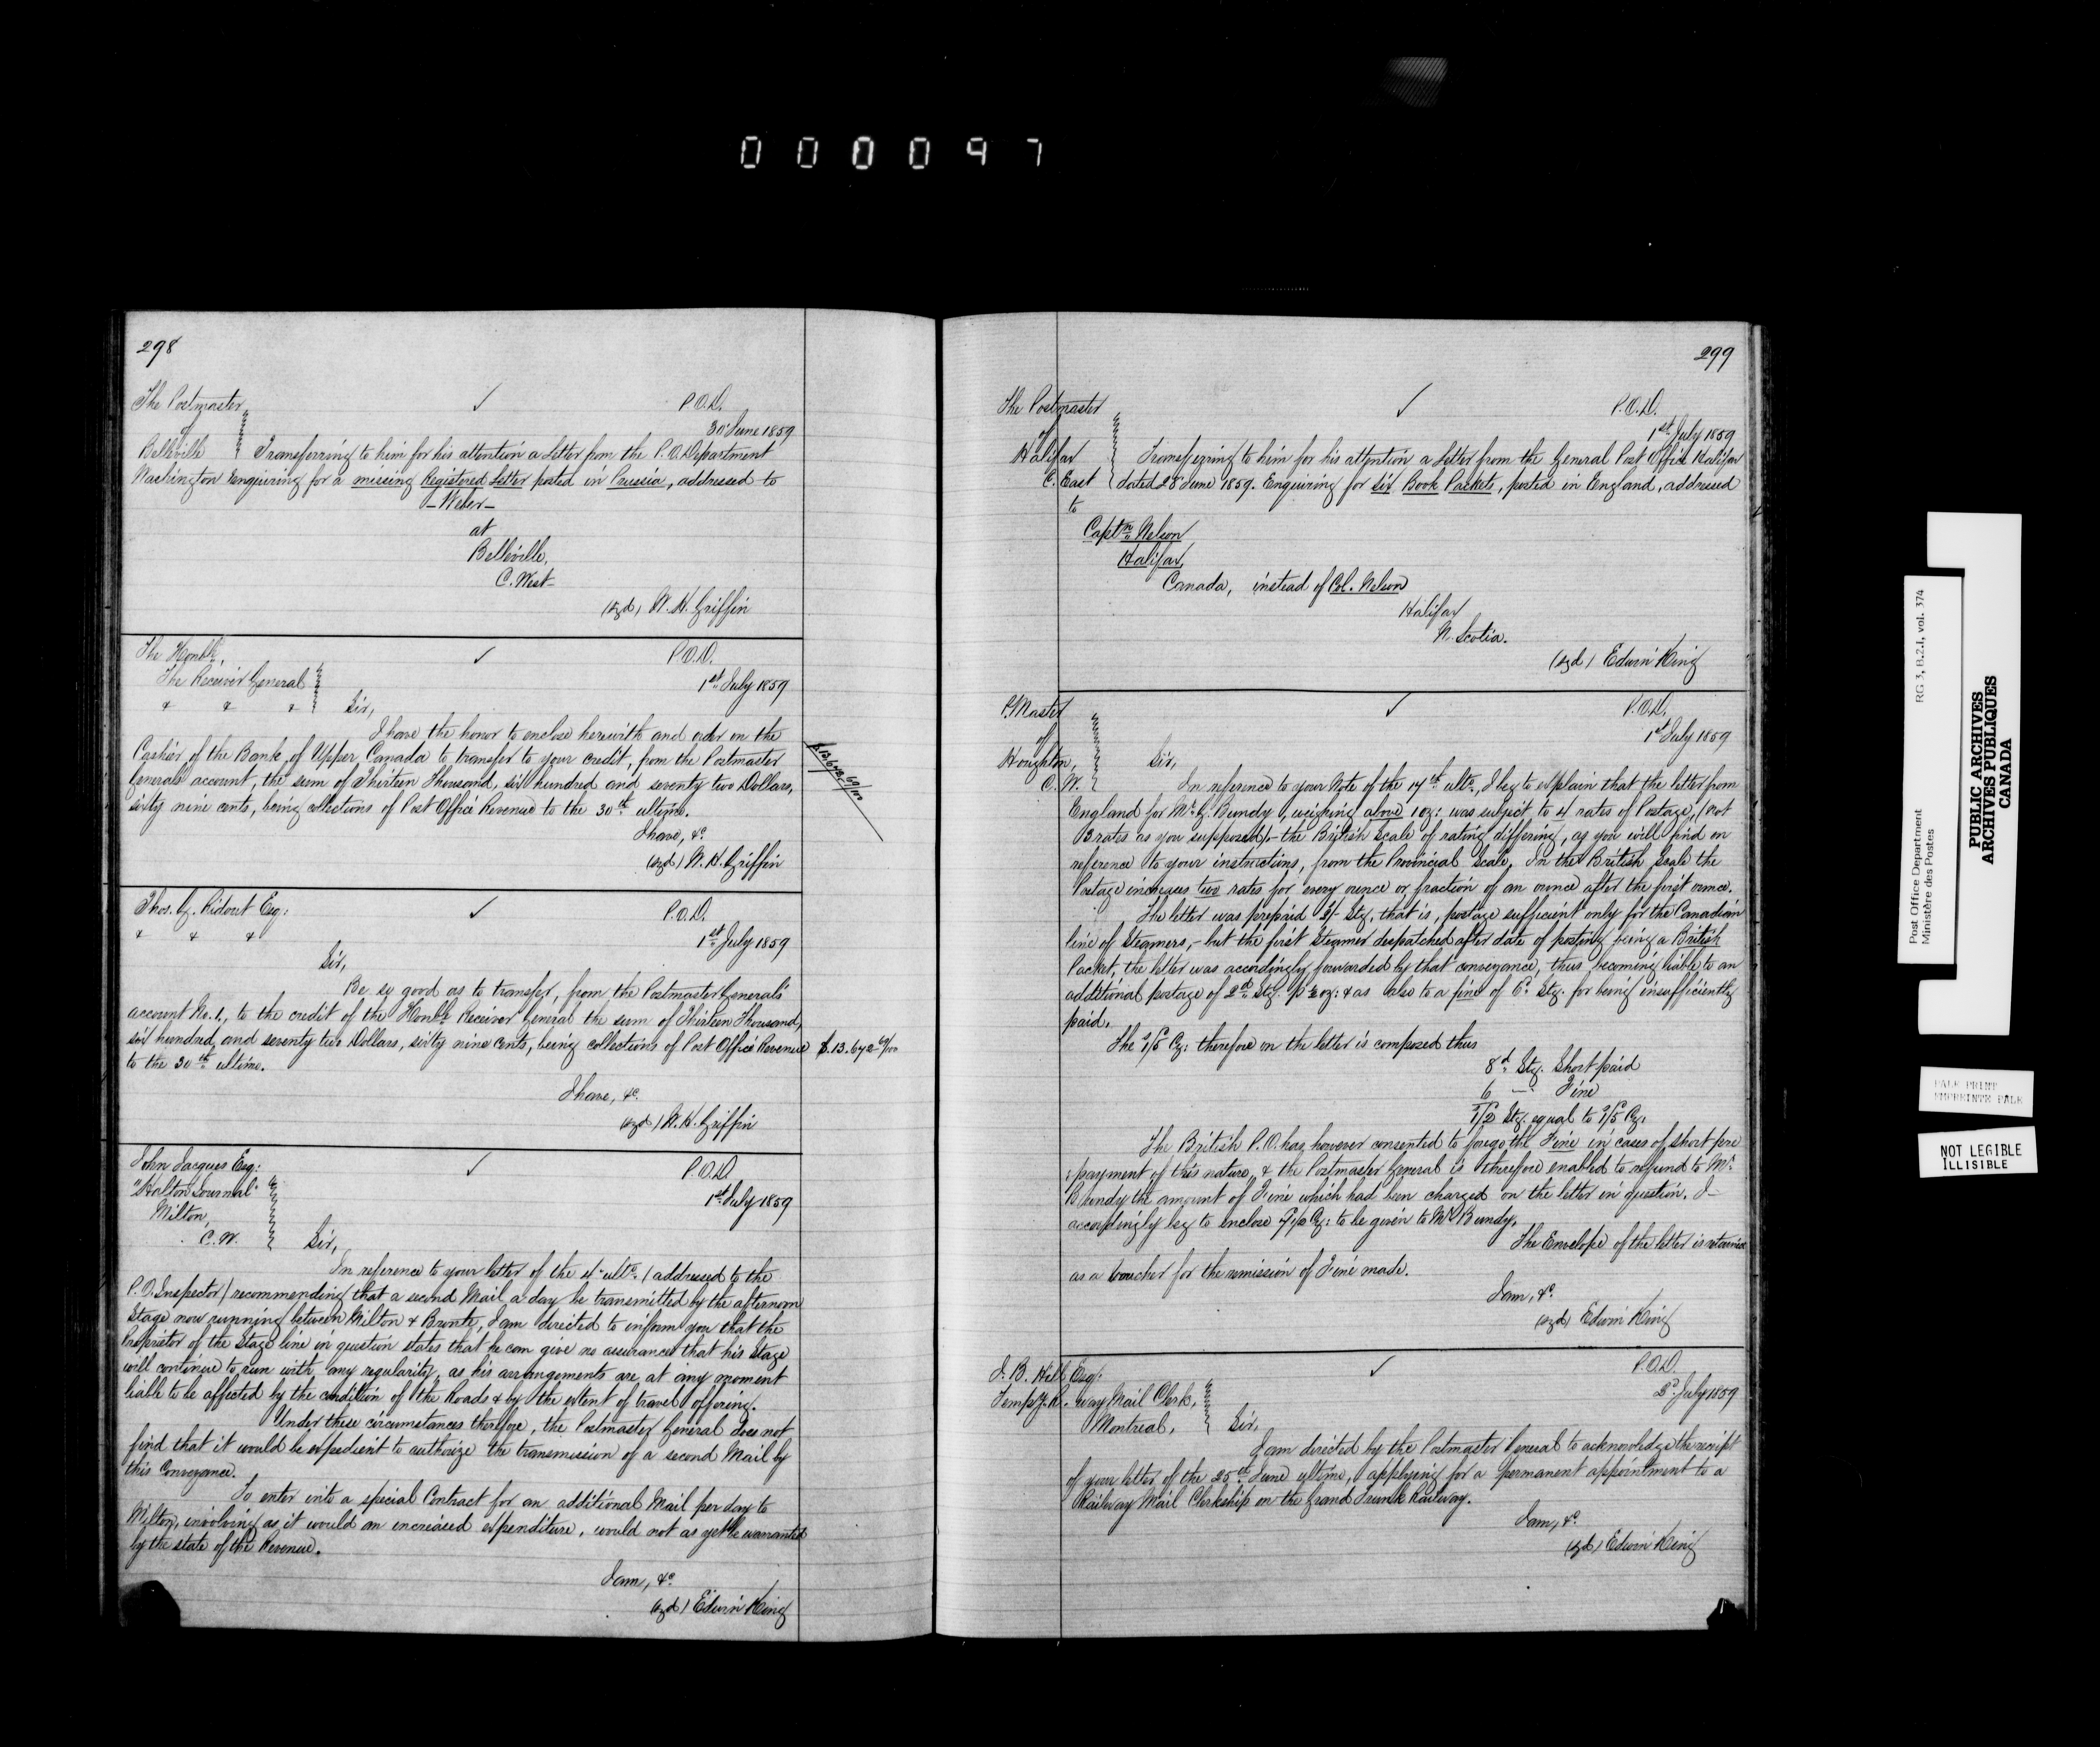 000097
298
The Postmaster
of
Belleville
✓
P.O.D.
30 June 1859
Transferring to him for his attention a Letter from the P.O. Department
Washington enquiring for a missing Registered Letter posted in Prussia, addressed to
- Weber -
at
Belleville,
C. West -
(sgd) W. H. Griffin
The Honble,
The Receiver General
& & &
✓
P.O.D.
1st July 1859
Sir,
I have the honor to enclose herewith and order on the
Cashier of the Bank of Upper Canada to transfer to your credit, from the Postmaster
Generals account, the sum of Thirteen Thousand, six hundred and seventy two Dollars,
sixty nine cents, being collections of Post Office Revenue to the 30th ultimo.
$13,672 69/100
I have, &c.
(sgd) W. H. Griffin
Thos. G. Ridout Esq:
& & &
✓
P.O.D.
1st July 1859
Sir,
Be so good as to transfer, from the Postmaster Generals'
account No. 1, to the credit of the Honble Receiver General the sum of Thirteen Thousand,
six hundred, and seventy two Dollars, sixty nine cents, being collections of Post Office Revenue
$.13.672 69/100
to the 30th ultimo.
I have, &c.
(sgd) W. H. Griffin
John Jacques Esq:
"Halton Journal"
Milton,
C.W.
✓
P.O.D.
1st July 1859
Sir,
In reference to your letter of the 4th ulto. (addressed to the
P.O. Inspector) recommending that a second Mail a day be transmitted by the afternoon
Stage now running between Milton & Bronte, I am directed to inform you that the
Proprietor of the Stage line in question states that he can give no assurances that his Stage
will continue to run with any regularity, as his arrangements are at any moment
liable to be affected by the condition of the Roads & by the extent of travel offering.
Under these circumstances therefore, the Postmaster General does not
find that it would be expedient to authorize the transmission of a second Mail by
this Conveyance.
To enter into a special Contract for an additional Mail per day to
Milton, involving as it would an increased expenditure, would not as yet be warranted
by the state of the Revenue.
I am, &c.
(sgd) Edwin King
299
The Postmaster
of
Halifax
C. East
✓
P.O.D.
1st July 1859
Transferring to him for his attention a Letter from the General Post Office Halifax
dated 28 June 1859. Enquiring for six Book Packets, posted in England, addressed
to
Captn Nelson
Halifax
Canada, instead of Col. Nelson
Halifax
N. Scotia.
(sgd) Edwin King
P. Master
of
Houghton,
C.W.
✓
P.O.D.
1st July 1859
Sir,
In reference to your Note of the 14th ulto, I beg to explain that the letter from
England for Mr. G. Bundy, weighing above 1 oz: was subject to 4 rates of Postage, (not
3 rates as you supposed) - the British Scale of rating differing, as you will find on
reference to your instructions, from the Provincial Scale. In the British Scale the
Postage increases two rates for every ounce or fraction of an ounce after the first ounce.
The letter was prepaid 2/- Stg, that is, postage sufficient only for the Canadian
line of Steamers, - but the first Steamer despatched after date of posting being a British
Packet, the letter was accordingly forwarded by that conveyance, thus becoming liable to an
additional postage of 2d Stg. p ½ oz: & as also to a fine of 6d Stg. for being insufficiently
paid.
The 1/5 Cy: therefore on the letter is composed thus
8d Stg. Short paid
6 — Fine
1/2 Stg. equal to 1/5 Cy.
The British P.O. has however consented to forego the Fine in cases of short pre
:payment of this nature, & the Postmaster General is therefore enabled to refund to Mr.
Bundy the amount of Fine which had been charged on the letter in question. I -
accordingly beg to enclose 7½ Cy: to be given to Mr Bundy.
The Envelope of the letter is retained
as a voucher for the remission of Fine made.
I am, &c.
(sgd) Edwin King
Esq:
Temp. R. way Mail Clerk,
Montreal,
✓
P.O.D.
2d July 1859
Sir,
I am directed by the Postmaster General to acknowledge the receipt
of your letter of the 25th June ultimo, applying for a permanent appointment to a
Railway Mail Clerkship on the Grand Trunk Railway.
I am, &c.
(sgd) Edwin King
Post Office Department
Ministère des Postes
RG 3, B.2.1, vol. 374
PUBLIC ARCHIVES
ARCHIVES PUBLIQUES
CANADA
PALE PRINT
EMPREINTE PALE
NOT LEGIBLE
ILLISIBLE